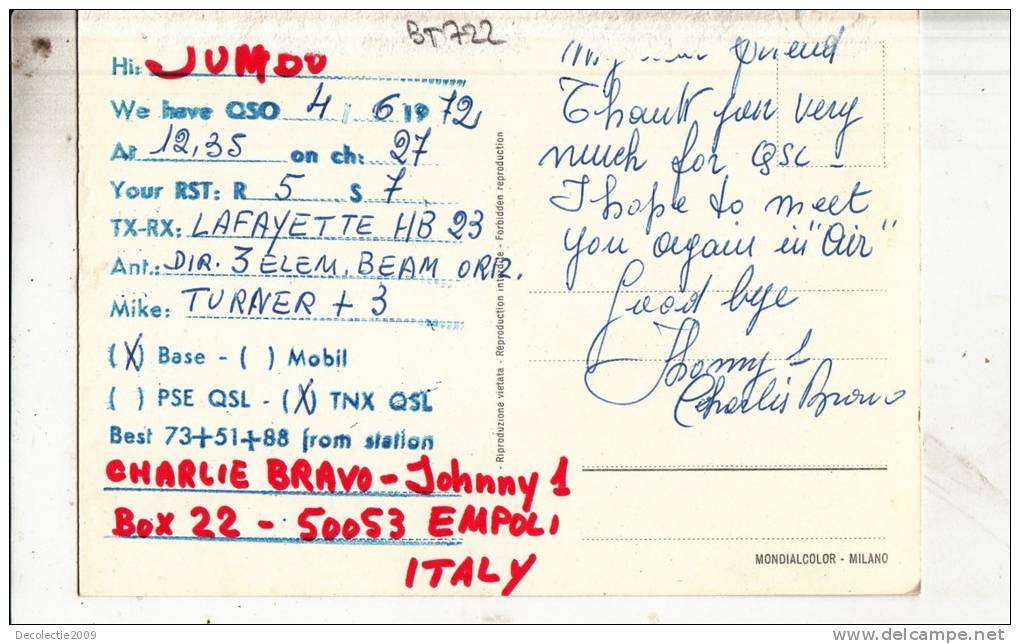 BT722
Hi: JUMDO
We have QSO 4 / 6 1972
At 12,35 on ch: 27
Your RST: R 5 S 7
TX-RX: LAFAYETTE HB 23
Ant.: DIR. 3 ELEM. BEAM ORIZ.
Mike: TURNER + 3
(X) Base - ( ) Mobil
( ) PSE QSL - (X) TNX QSL
Best 73+51+88 from station
CHARLIE BRAVO - Johnny 1
Box 22 - 50053 EMPOLI
ITALY
- Riproduzione vietata - Réproduction interdite - Forbidden reproduction
My dear friend
Thank you very
much for QSL -
I hope to meet
you again in "air"
Good bye
Jhonny 1
Charlie Bravo
MONDIALCOLOR - MILANO
Decolectie2009
delcampe.net